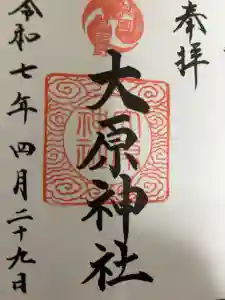 奉拝
大原神社
令和七年四月二十九日